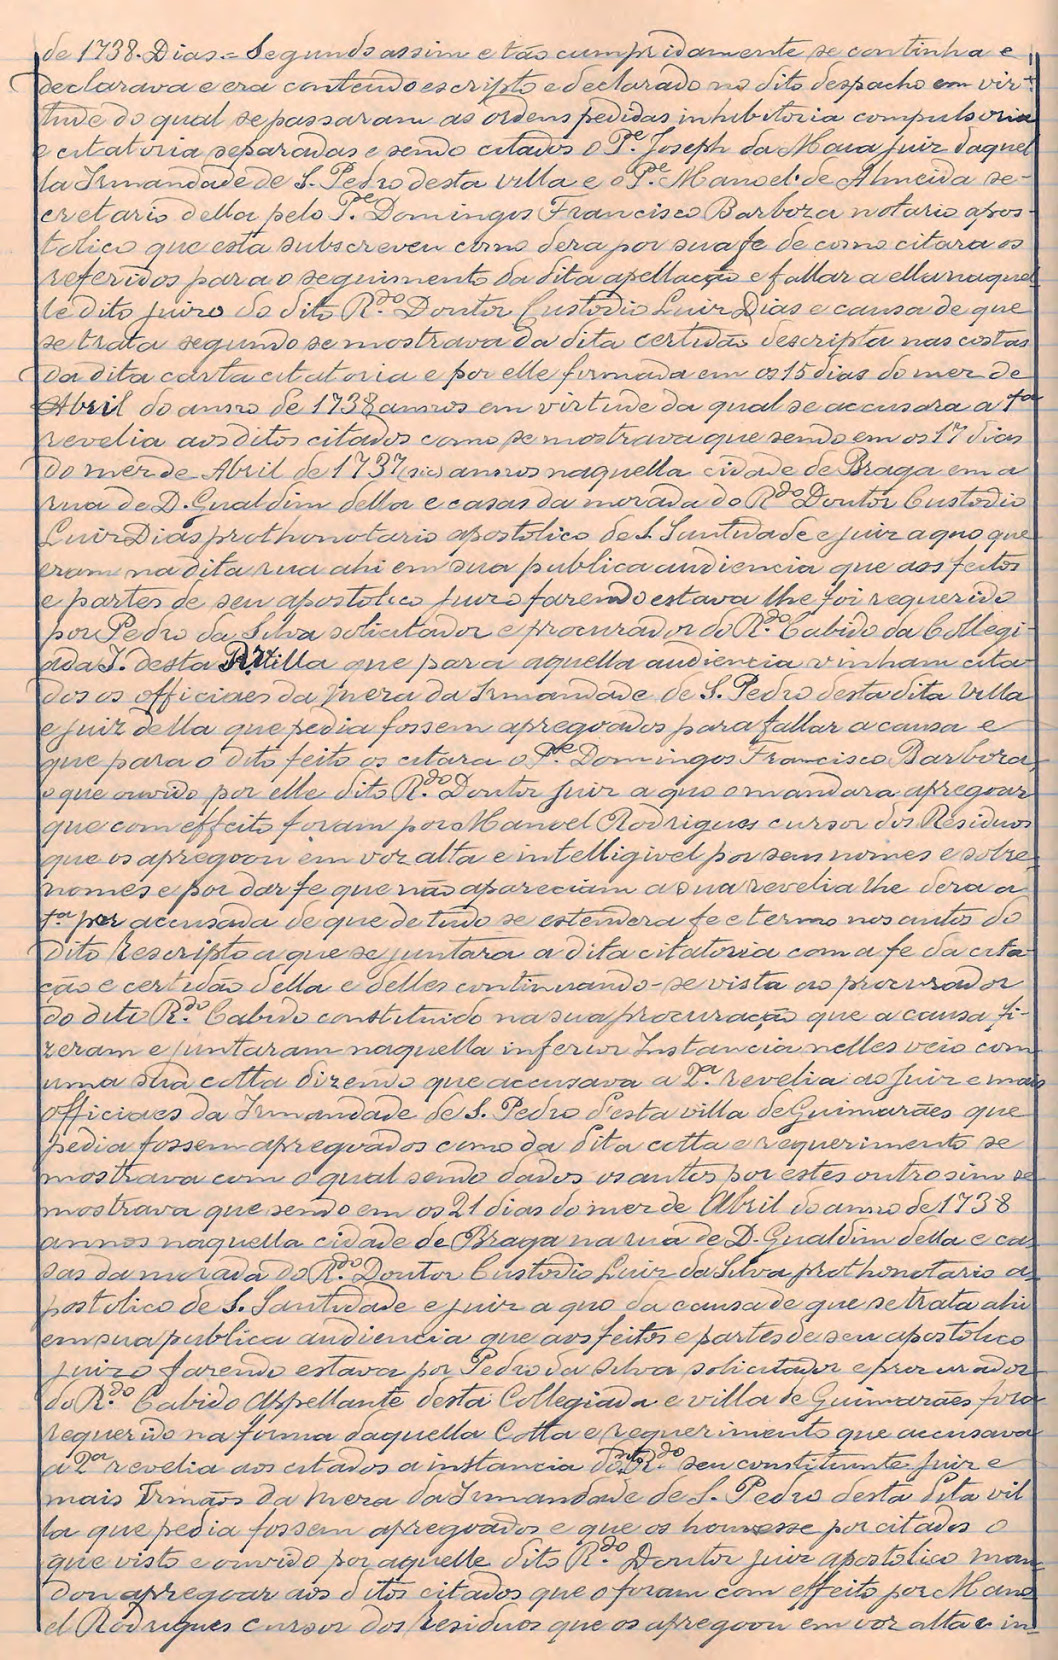 de 1738. Dias.= Segundo assim e tão cumpridamente se continha e
declarava e era conteudo escripto e declarado no dito despacho em vir-
tude do qual se passaram as ordens pedidas inhibitoria compulsoria
e citatoria separadas e sendo citados o Pe. Joseph da Maia juiz daquel
la Irmandade de S. Pedro desta villa e o Pe. Manoel de Almeida se-
cretario della pelo Pe. Domingos Francisco Barboza notario apos-
tolico que esta subscreveu como dera por sua fe de como citara os
referidos para o seguimento da dita apellação e fallar a ella naquel
le dito juizo do dito Rdo. Doutor Custodio Luiz Dias e causa de que
se trata segundo se mostrava da dita certidão descripta nas costas
da dita carta citatoria e por elle firmada em os 15 dias do mez de
Abril do anno de 1738 annos em virtude da qual se accusara a 1ª
revelia aos ditos citados como se mostrava que sendo em os 17 dias
do mez de Abril de 1737 (sic) annos naquella cidade de Braga em a
rua de D. Gualdim della e casas da morada do Rdo. Doutor Custodio
Luiz Dias prothonotario apostolico de S. Santidade e juiz a quo que
eram na dita rua ahi em sua publica audiencia que aos feitos
e partes de seu apostolico juizo fazendo estava lhe foi requerido
por Pedro da Silva solicitador e procurador do Rdo. Cabido da Collegi-
ada I. desta Villa que para aquella audiencia vinham cita-
dos os officiaes da Meza da Irmandade de S. Pedro desta dita Villa
e juiz della que pedia fossem apregoados para fallar a causa e
que para o dito feito os citara o Pe. Domingos Francisco Barboza,
o que ouvido por elle dito Rdo. Doutor Juiz a quo o mandara apregoar
que com effeito foram por Manoel Rodrigues cursor dos Residuos
que os apregoou em voz alta e intelligivel por seus nomes e sobre-
nomes e por dar fe que não apareciam a sua revelia lhe dera a
1ª por accusada de que de tudo se estendera fe e termo nos autos do
dito Rescripto a que se juntara a dita citatoria com a fe da cita-
ção e certidão della e delles continuando-se vista ao procurador
do dito Rdo. Cabido constituido na sua procuração que a causa fi-
zeram e juntaram naquella inferior Instancia nelles veio com
uma sua cotta dizendo que accusava a 2ª. revelia ao Juiz e mais
officiaes da Irmandade de S. Pedro desta villa de Guimarães que
pedia fossem apregoados como da dita cotta e requerimento se
mostrava com o qual sendo dados os autos por estes outrosim se
mostrava que sendo em os 21 dias do mez de Abril do anno de 1738
annos naquella cidade de Braga na rua de D. Gualdim della e ca-
sas da morada do Rdo. Doutor Custodio Luiz da Silva prothonotario a-
postolico de S. Santidade e juiz a quo da causa de que se trata ahi
em sua publica audiencia que aos feitos e partes de seu apostolico
juizo fazendo estava por Pedro da Silva solicitador e procurador
do Rdo. Cabido Appellante desta Collegiada e villa de Guimarães fora
requerido na forma daquella Cotta e requerimento que accusava
a 2ª revelia aos citados a instancia do Rdo. seu constituinte Juiz e
mais Irmãos da Meza da Irmandade de S. Pedro desta dita vil
la que pedia fossem apregoados e que os houvesse por citados o
que visto e ouvido por aquelle dito Rdo. Doutor juiz apostolico man-
dou apregoar aos ditos citados que o foram com effeito por Mano-
el Rodrigues cursor dos residuos que os apregoou em voz alta e in-